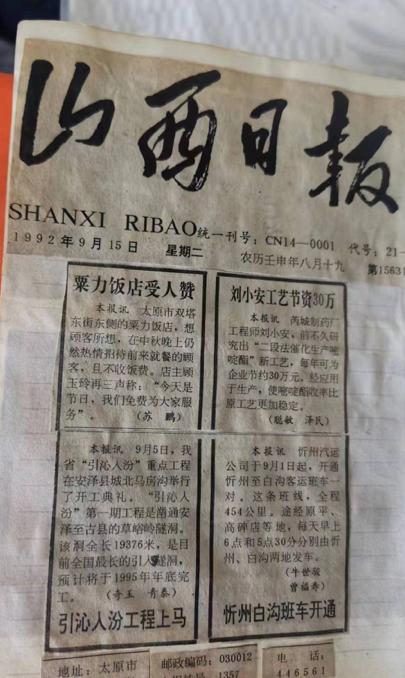 山西日报
SHANXI RIBAO 统一刊号：CN14—0001 代号：21-
1992年9月15日 星期二 农历壬申年八月十九 第1563
粟力饭店受人赞
本报讯 太原市双塔
东街东侧的粟力饭店，想
顾客所想，在中秋晚上仍
然热情招待前来就餐的顾
客，且不收饭费。店主顾
玉玲再三声称：“今天是
节日，我们免费为大家服
务”。 （苏 鹏）
刘小安工艺节资30万
本报讯 芮城制药厂
工程师刘小安，前不久研
究出“二段法催化生产嘧
啶酯”新工艺，每年可为
企业节约30万元。经应用
于生产，使嘧啶酯收率比
原工艺更加稳定。
（聪敏 泽民）
本报讯 9月5日，我
省“引沁入汾”重点工程
在安泽县城北马房沟举行
了开工典礼。“引沁入
汾”第一期工程是凿通安
泽至古县的草峪岭隧洞。
该洞全长19376米，是目
前全国最长的引水隧洞，
预计将于1995年年底完
工。 （奇玉 青泰）
引沁入汾工程上马
本报讯 忻州汽运
公司于9月1日起，开通
忻州至白沟客运班车一
对。这条班线，全程
454公里。途经原平、
高碑店等地，每天早上
6点和5点30分分别由忻
州、白沟两地发车。
（牛世骏
曾福寿）
忻州白沟班车开通
地址：太原市
邮政编码：030012
1357
电话：
446561